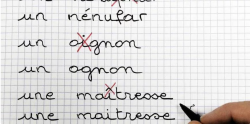 un nénufar
un oignon
un ognon
une maîtresse
une maitresse